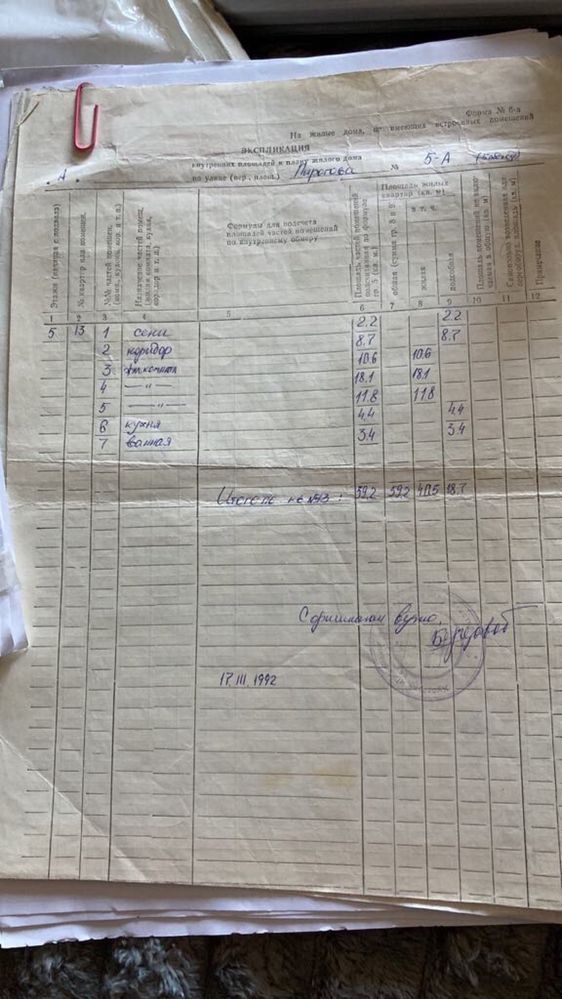 Форма № 6-а
На жилые дома, не имеющих встроенных помещений
ЭКСПЛИКАЦИЯ
внутренних площадей к плану жилого дома
"А" по улице (пер., площ.) Пирогова № 5-А
Этажи (начиная с подвала)
№ квартир или помещ.
№№ частей помещен. (комн., кухонь, кор. и т. п.)
Назначение частей помещ. (жилая комната, кухня, коридор и т. п.)
Формулы для подсчета площадей частей помещений по внутреннему обмеру
Площадь частей помещений подсчитанная по формулам гр. 5 (кв. м.)
Площадь жилых квартир (кв. м)
общая (сумма гр. 8 и 9)
в т. ч.
жилая
подсобная
Примечание
1 2 3 4 5 6 7 8 9 10 11 12
5 13 1 сени 2.2 2.2
2 коридор 8.7 8.7
3 жил. комната 10.6 10.6
4 —"— 18.1 18.1
5 —"— 11.8 11.8
6 кухня 4.4 4.4
7 ванная 3.4 3.4
Итого по кв №13: 59.2 59.2 40.5 18.7
С оригиналом
17.III.1992